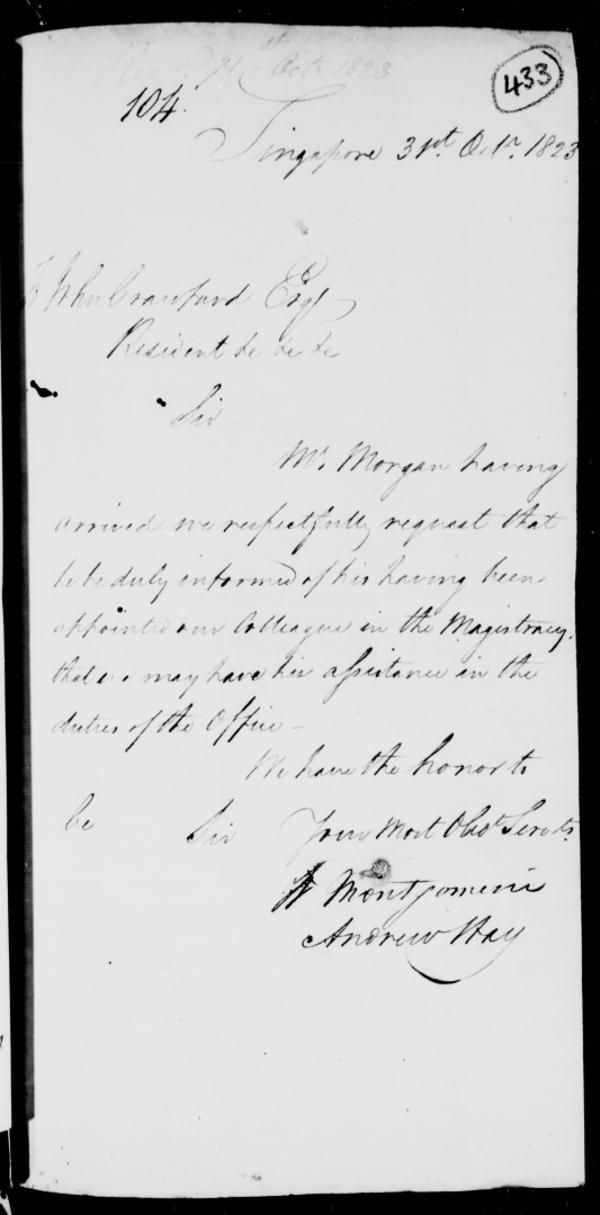 433
Rec'd 31st Octr 1823
104.
Singapore 31st. Octr. 1823
To John Crawfurd Esqr
Resident &c &c &c
Sir
Mr. Morgan having
arrived we respectfully request that
he be duly informed of his having been
appointed our Colleague in the Magistracy.
that we may have his assistance in the
duties of the Office -
We have the honor to
be Sir Your Most Obedt Servts.
Montgomerie
Andrew Hay